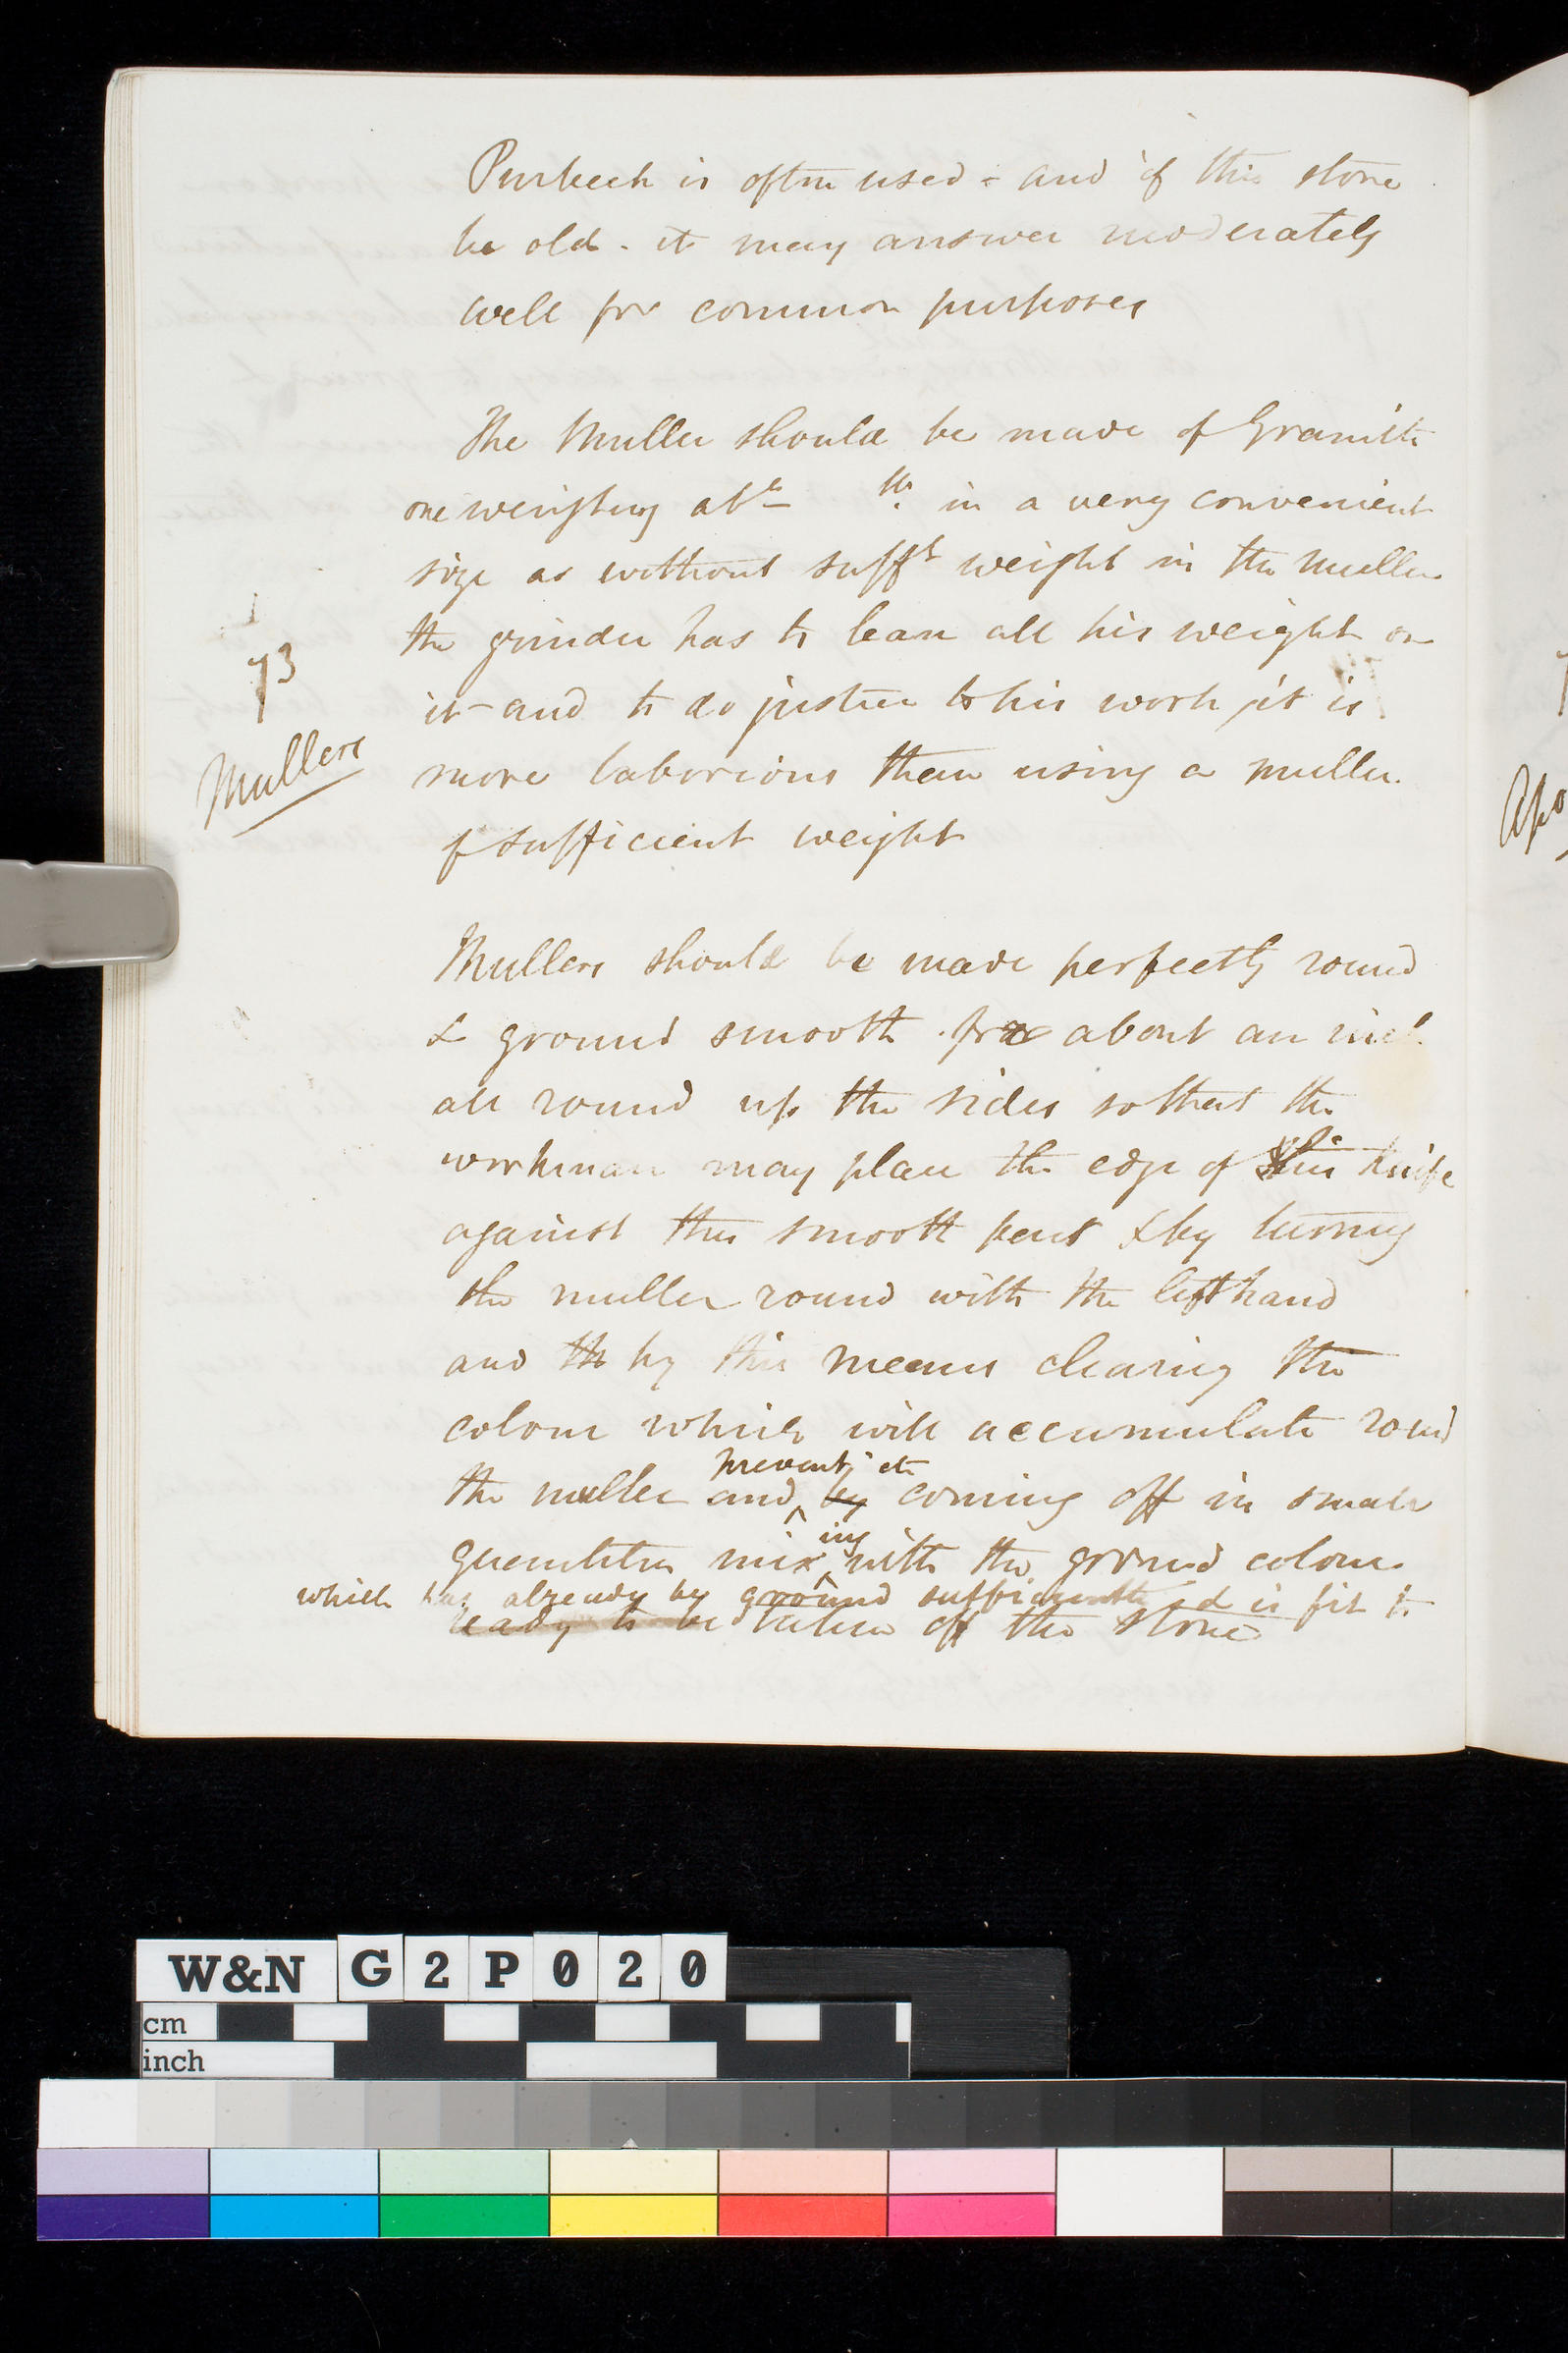 Purbeck is often used - and if this stone
be old - it may answer moderately
well for common purposes
The Muller should be made of Granite
one weighing abt lb. is a very convenient
size as without sufft weight in the muller
the grinder has to lean all his weight on
it - and to do justice to his work, it is
more laborious than using a muller
of sufficient weight
73
Mullers
Mullers should be made perfectly round
& ground smooth for about an inch
all round up the sides so that the
workman may place the edge of his knife
against this smooth part & by turning
the muller round with the left hand
and th by this means clearing the
colour which will accumulate round
prevent its
the muller and by coming off in small
ing
quantities mix with the ground colour
which has already by ground sufficiently & is fit to
ready to be taken off the stone
Apo
W&N G2P020
cm
inch